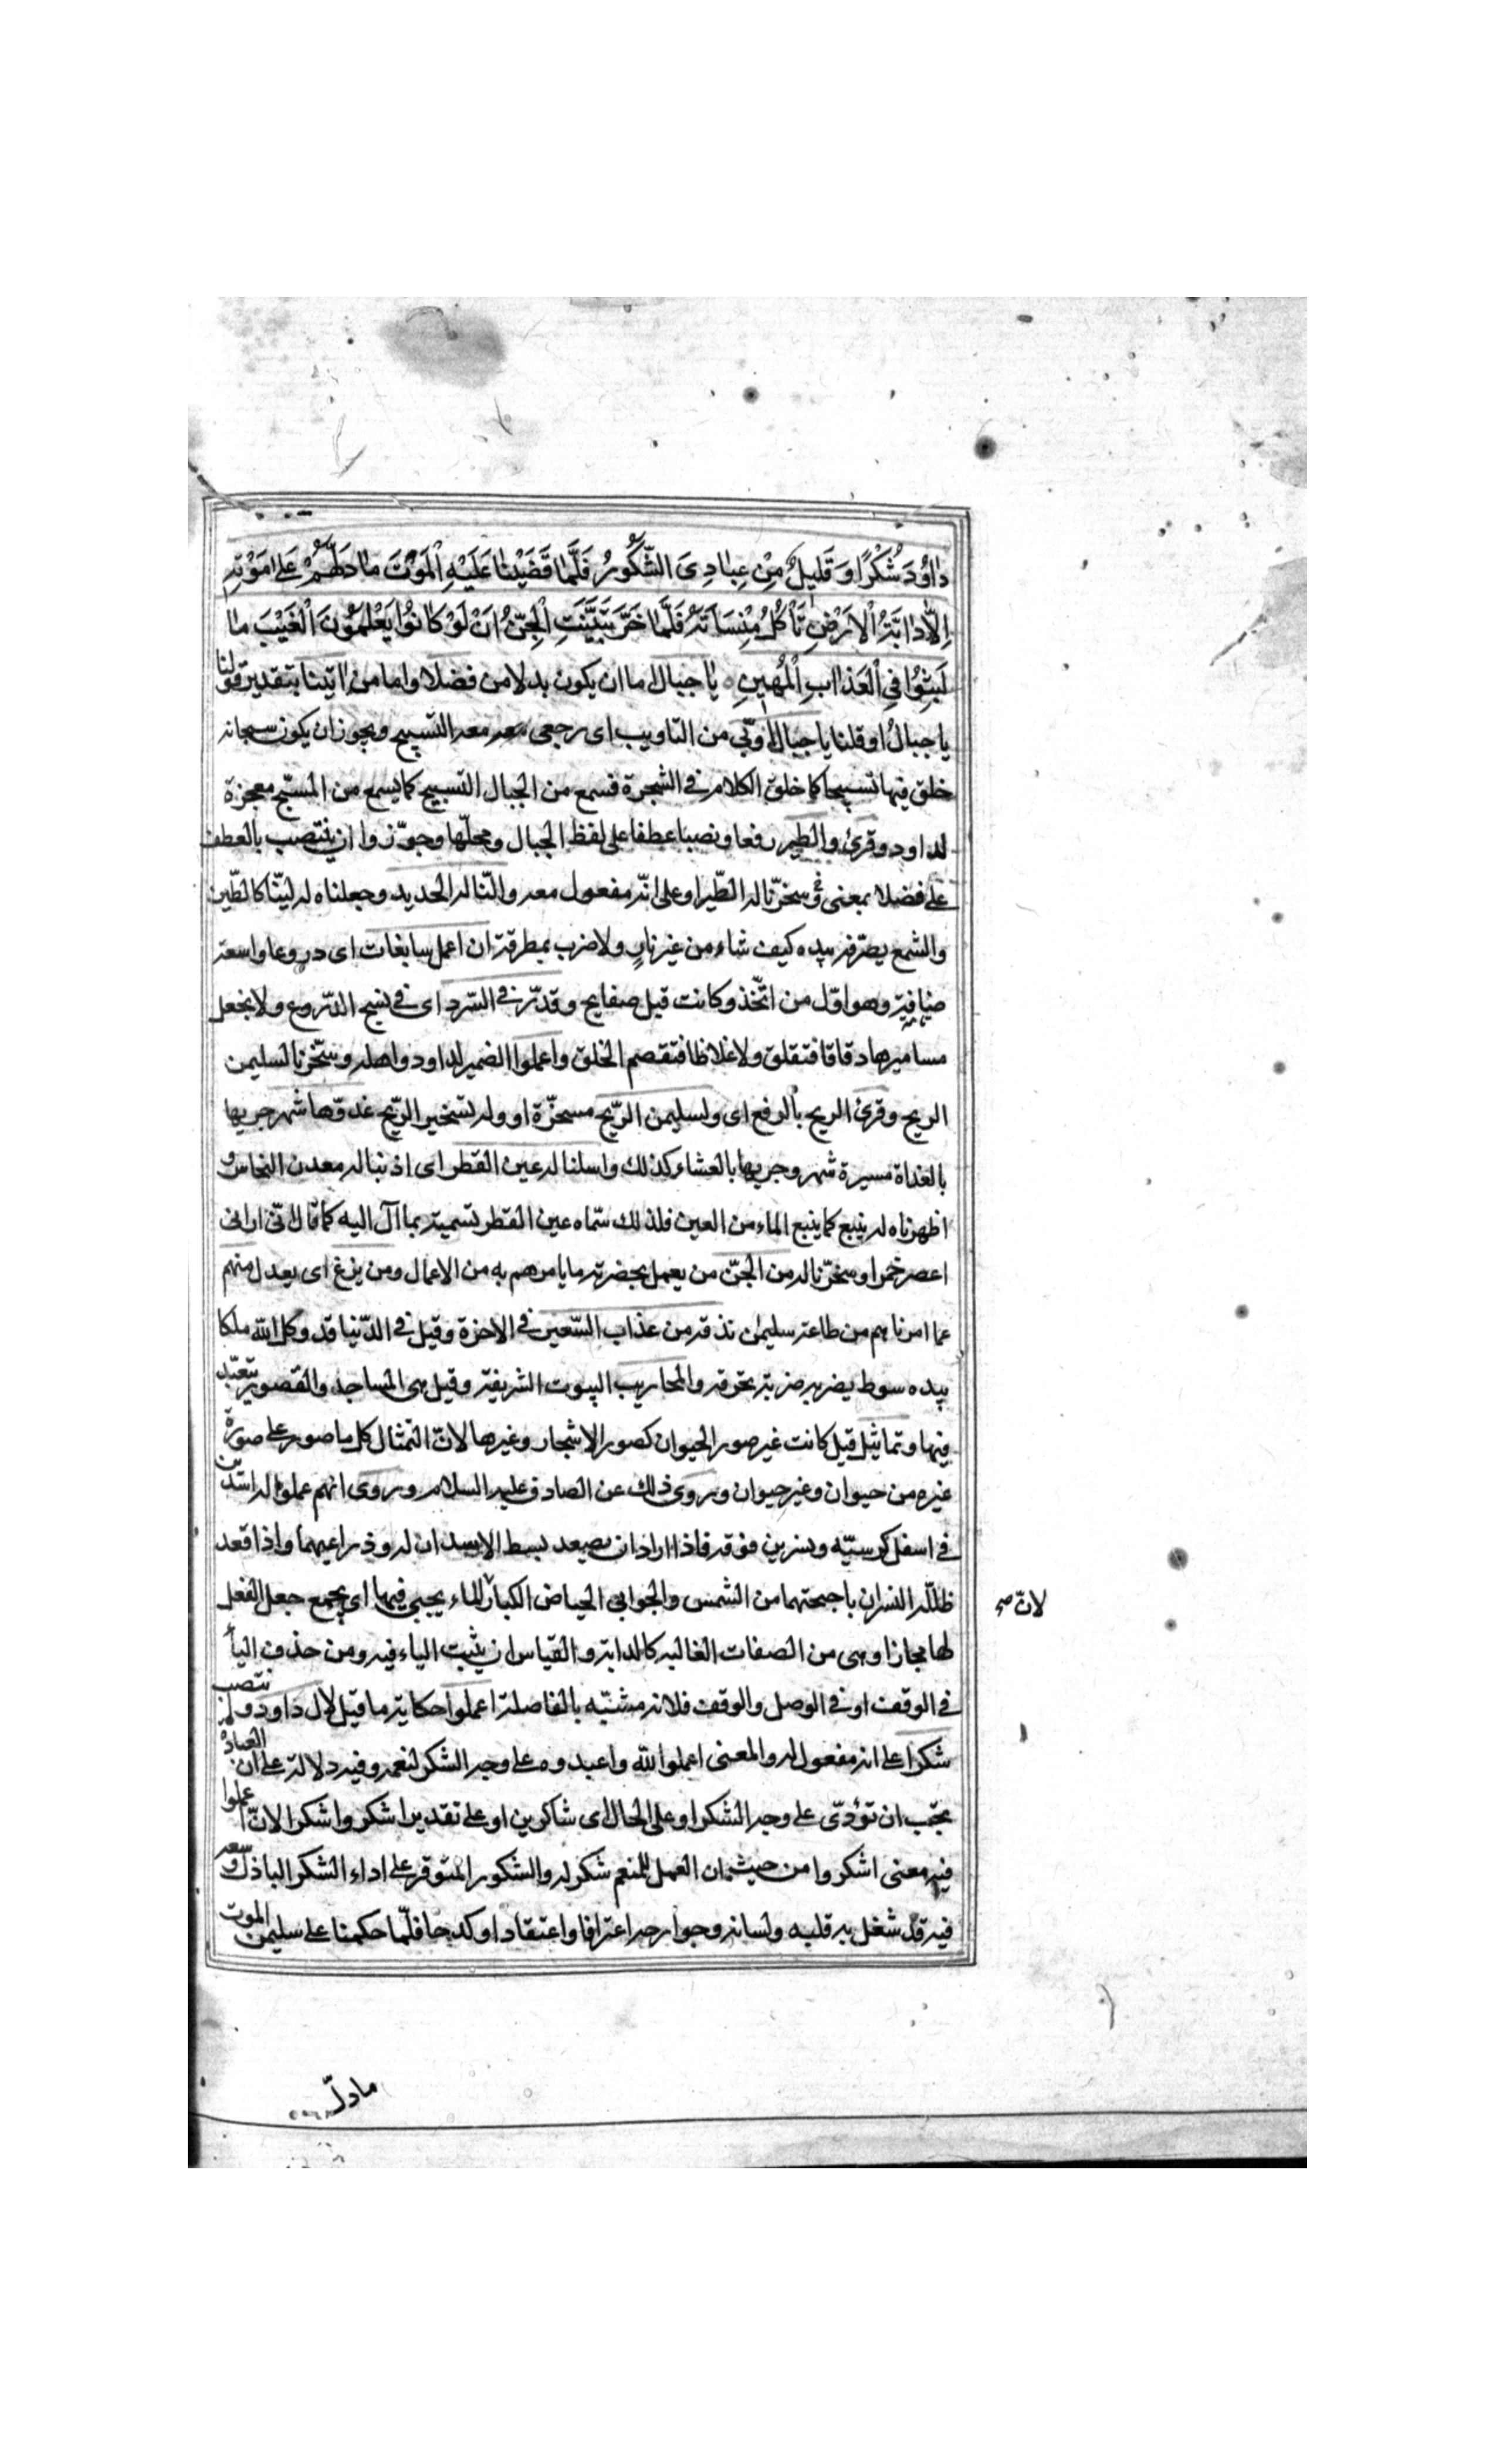 دٰاوُدَ شُكْرًا وَ قَلِيلٌ مِنْ عِبٰادِىَ الشَّكُورُ فَلَمّٰا قَضَيْنٰا عَلَيْهِ الْمَوْتَ مٰا دَلَّهُمْ عَلىٰ مَوْتِهِ
اِلّٰا دٰابَّةُ الْاَرْضِ تَأْكُلُ مِنْسَاَتَهُ فَلَمّٰا خَرَّ تَبَيَّنَتِ الْجِنُّ اَنْ لَوْ كٰانُوا يَعْلَمُونَ الْغَيْبَ مٰا
لَبِثُوا فِى الْعَذٰابِ الْمُهِينِ يا جبال اما ان يكون بدلا من فضلا واما من اٰتينا بتقدير قولنا
يا جبالُ او قلنا يا جبال اوّبى من التاويب اى رجعى معه التسبيح ويجوز ان يكون سبحانه
خلق فيها تسبيحا كما خلق الكلام فى الشجرة فسمع من الجبال التسبيح كما يسمع من المسبّح معجزة
لداود وقرئ والطير رفعا ونصبا عطفا على لفظ الجبال ومحلّها وجوّزوا ان ينتصب بالعطف
على فضلا بمعنى وسخرّنا له الطّير او على انّه مفعول معه والنّا له الحديد وجعلناه له ليّنا كالطّين
والشمع يصرّفه بيده كيف شاء من غير نارٍ ولا ضرب بمطرقة ان اعمل سابغات اى دروعا واسعة
ضافية وهو اوّل من اتّخذ وكانت قبل صفايح وقدّر فى السّرد اى فى نسج الدّروع ولا تجعل
مساميرها دقاقا فتقلق ولا غلاظا فتقصم الحلق واعملوا الضمير لداود واهله وسخّرنا لسليمن
الريح وقرئ الريح بالرفع اى ولسليمن الرّيح مسخرّة او وله تسخير الرّيح غدوّها شهر جريها
بالغداة مسيرة شهر وجريها بالعشاء كذلك واسلنا له عين القطر اى اذبنا له معدن النحاس و
اظهرناه له ينبع كما ينبع الماء من العين فلذلك سمّاه عين القطر تسمية بما آل اليه كما قال انّى ارانى
اعصر خمرا وسخرّنا له من الجنّ من يعمل بحضرته ما يامرهم به من الاعمال ومن يزغ اى يعدل منهم
عما امرناهم من طاعة سليمٰن نذقه من عذاب السّعير فى الاخرة وقيل فى الدّنيا قد وكل الله ملكا
بيده سوط يضربه ضربة تحرقه والمحاريب البيوت الشريفة وقيل هى المساجد والقصور يتعبّد
فيها وتماثيل قيل كانت غير صور الحيوان كصور الاشجار وغيرها لانّ التمثال كل ما صور على صورة
غيره من حيوان وغير حيوان وروى ذلك عن الصادق عليه السلام وروى انهم عملوا له اسدين
فى اسفل كرسيّه ونسرين فوقه فاذا اراد ان يصعد بسط الاسدان له ذراعيهما واذا قعد
ظلّله النسران باجنحتهما من الشمس والجوابى الحياض الكبار الماء يجبى فيها اى يجمع جعل الفعل
لانّ صح
لها مجازا وهى من الصفات الغالبه كالدابة والقياس ان يثبت الياء فيه ومن حذف الياء
فى الوقف او فى الوصل والوقف فلانه مشبّه بالفاصلة اعملوا حكاية ما قيل لال داود وانتصب
شكرا على انه مفعول له والمعنى اعملوا لله واعبدوه على وجه الشكر لنعمه وفيه دلالة على ان العبادة
يجب ان تؤدّى على وجه الشكر او على الحال اى شاكرين او على تقدير اشكروا شكرا لانّ اعملوا
فيه معنى اشكروا من حيث ان العمل للمنعم شكر له والشكور المتوفر على اداء الشكر الباذل وسعه
فيه قد شغل به قلبه ولسانه وجوارحه اعترافا واعتقادا وكدحا فلّما حكمنا على سليمن الموت
ما دلّ